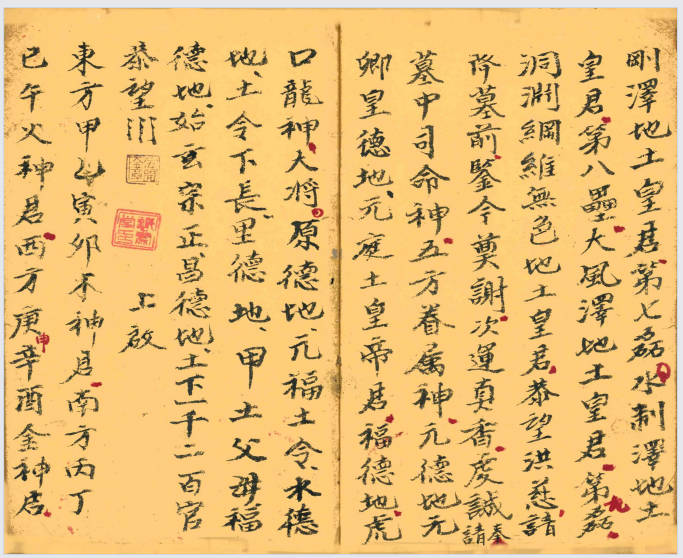 剛澤地土皇君第七磊水制澤地土
皇君第八壘大風澤地土皇君第九磊
洞淵綱維無色地土皇君恭望洪慈請
降墓前鑒今奠謝次運真香虔誠奏請
墓中司命神五方眷属神元德地元
卿皇德地元庭土皇帝君福德地虎
口龍神大将原德地元福土令水德
地土令下長里德地甲土父母福
德地始玄宗正昌德地土下一千二百官
恭望
上啟
東方甲乙寅卯木神君南方丙丁
巳午火神君西方庚辛申酉金神君